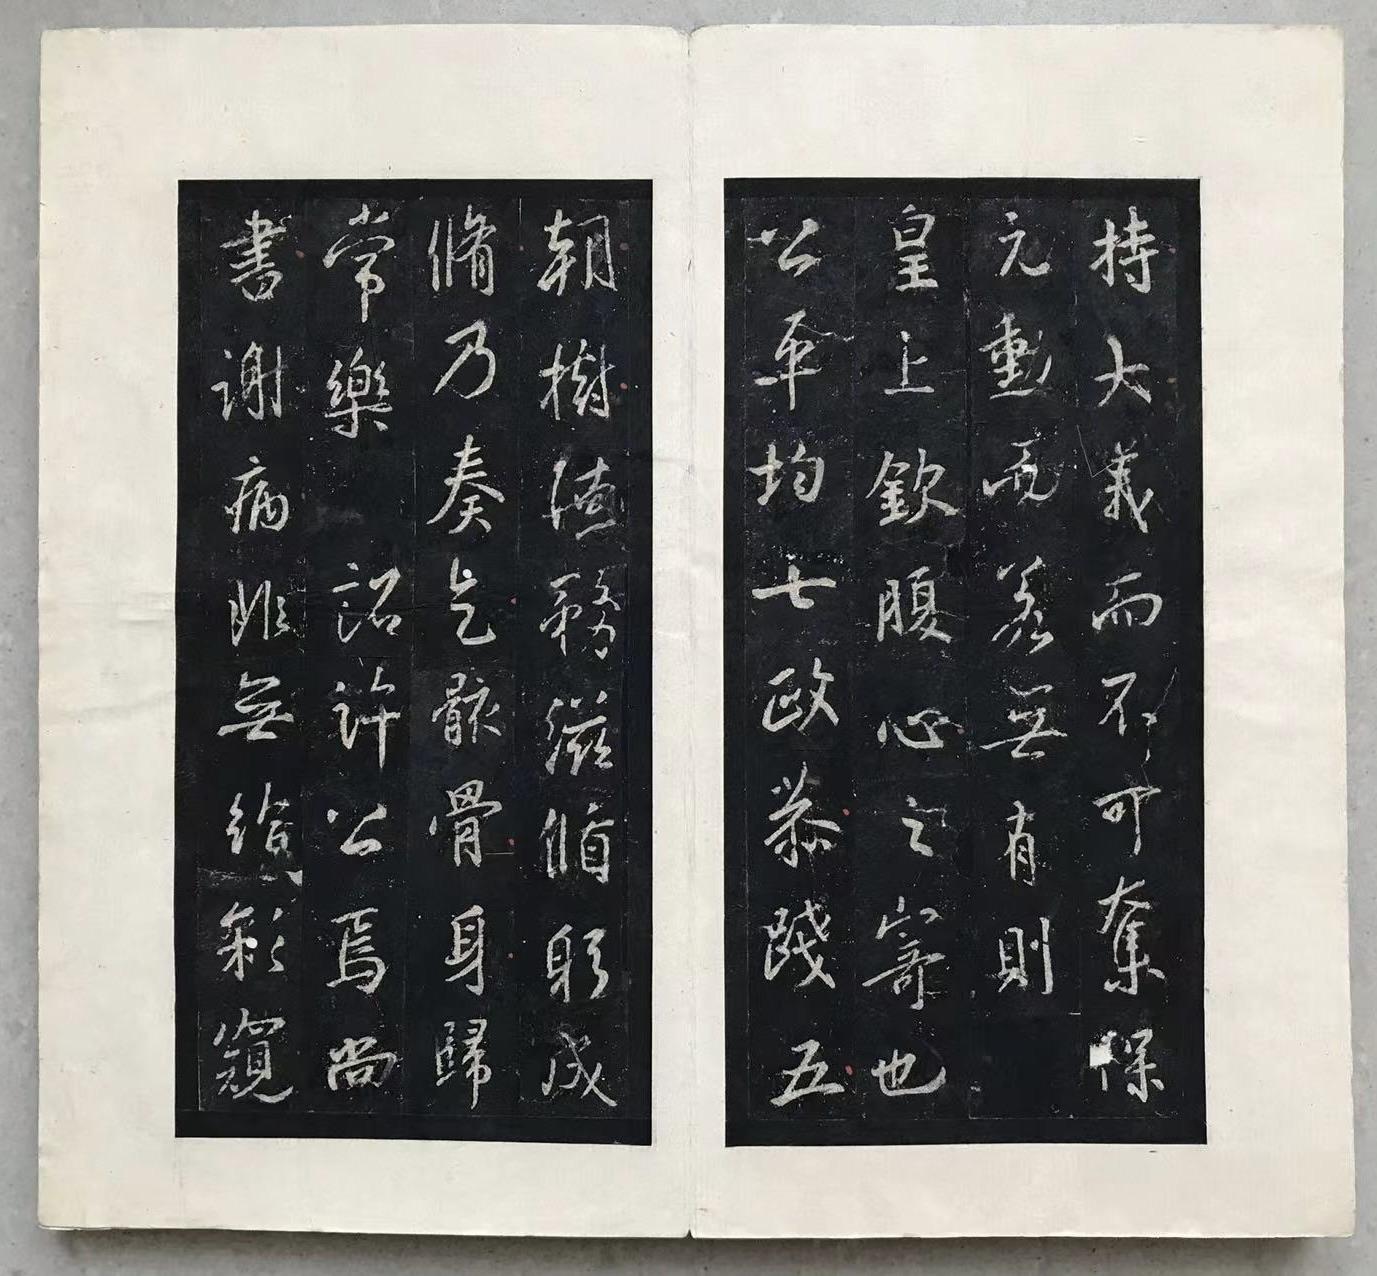 持大義而不可奪保
元勳若無有則
皇上欽腹心之寄也
公平均七政恭踐五
朝樹德務滋脩躬成
脩乃奏乞骸骨身歸
常樂 詔許公焉尚
書謝病非無給窺